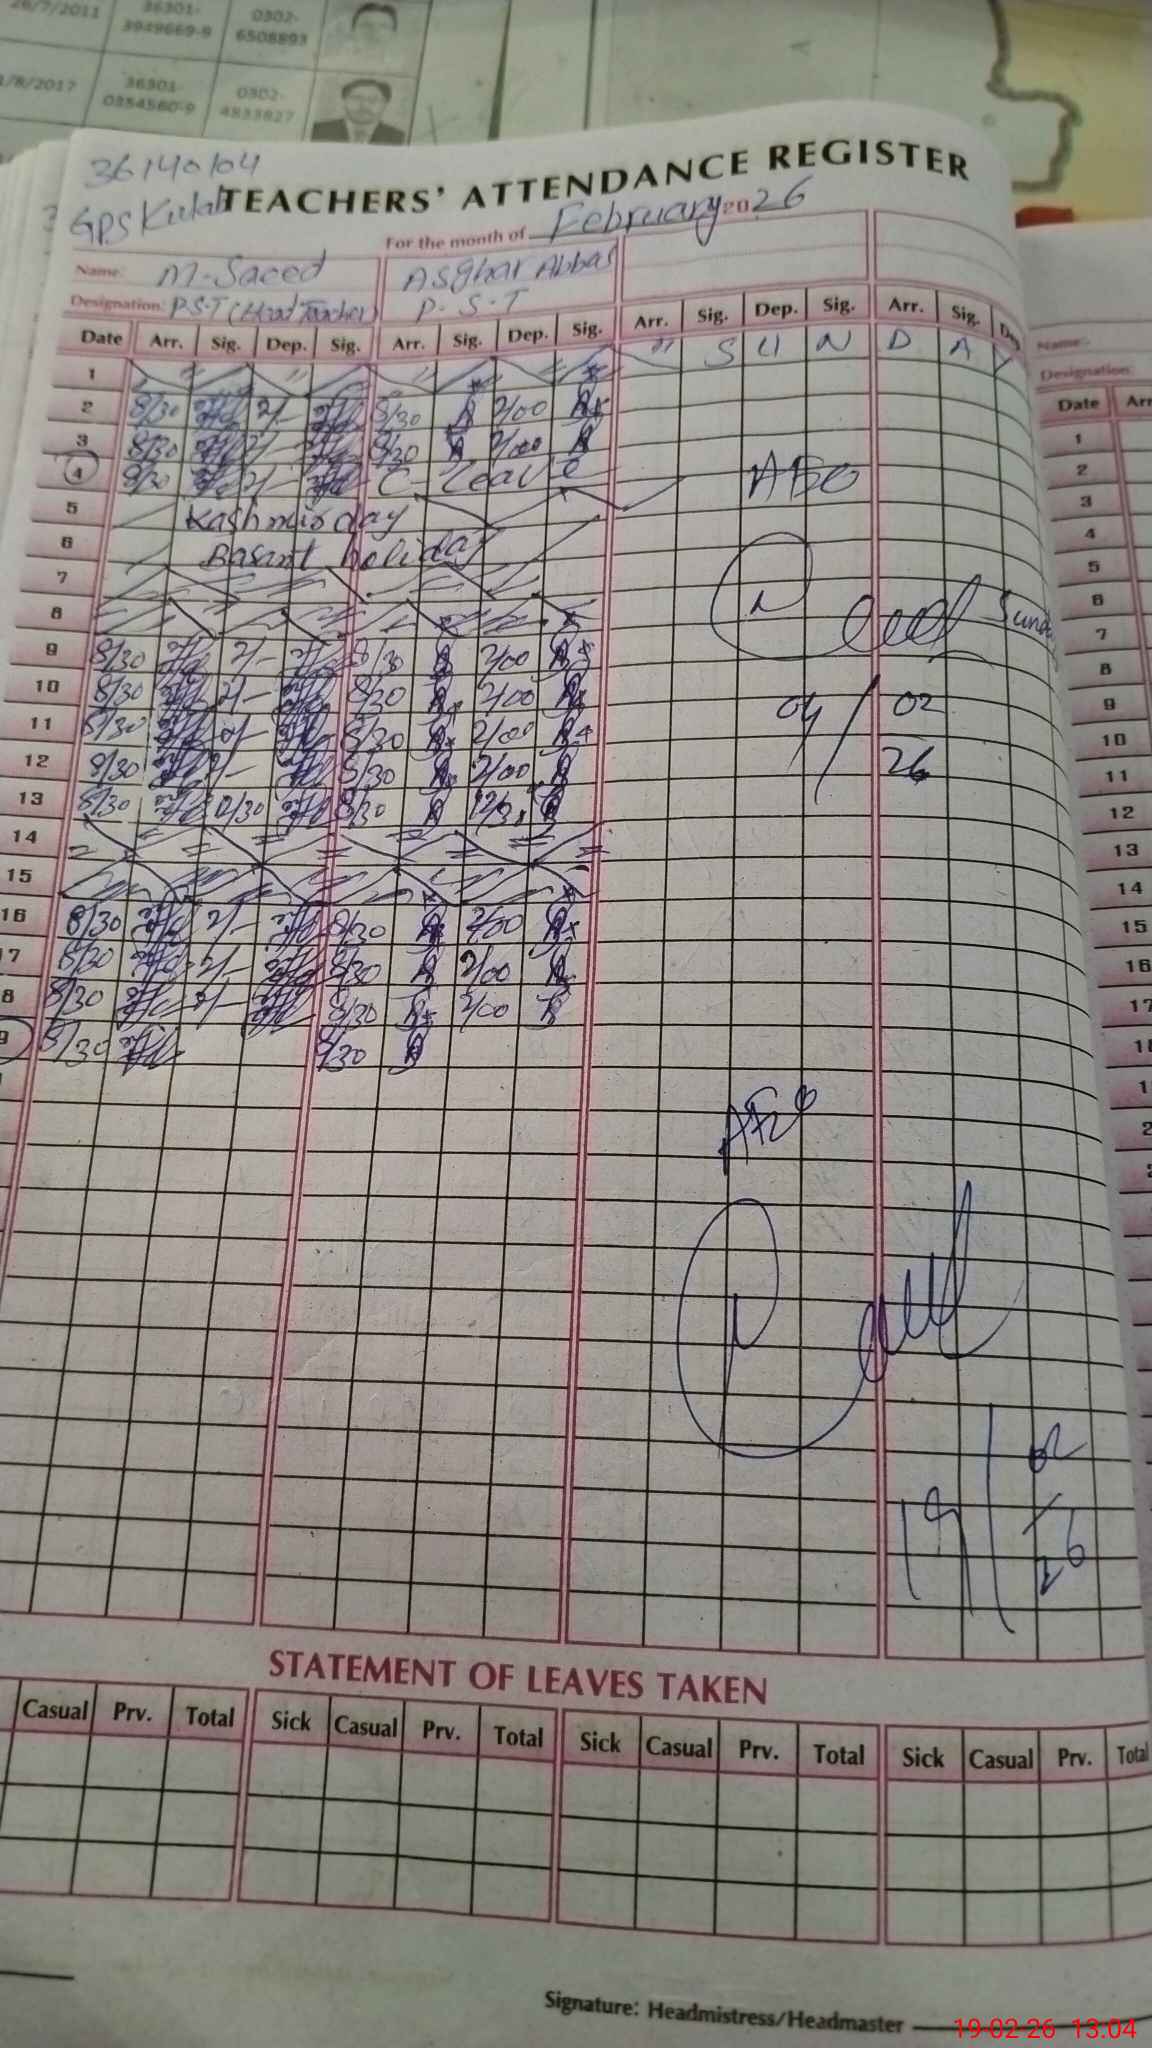 26/7/2011 36301-3949669-9 0302-6508893
1/8/2017 36301-0354560-9 0302-4533827
36140104
TEACHERS' ATTENDANCE REGISTER
GPS
For the month of February 2026
Name: M-Saeed Asghar Abbas
Designation: P.S.T (Head Teacher) P.S.T
Date Arr. Sig. Dep. Sig. Arr. Sig. Dep. Sig. Arr. Sig. Dep. Sig. Arr. Sig. Dep.
1 S U N D A Y
2 8/30 2/- 8/30 2/00
3 8/30 2/- 8/30 2/00
4 8/30 2/- C Leave
5 Kashmir day
6 Basant holiday
7
8 Sunday
9 8/30 2/- 8/30 2/00
10 8/30 2/- 8/30 2/00
11 8/30 2/- 8/30 2/00
12 8/30 2/- 8/30 2/00
13 8/30 12/30 8/30 12/30
14
15
16 8/30 2/- 8/30 2/00
17 8/30 2/- 8/30 2/00
18 8/30 2/- 8/30 2/00
19 8/30 8/30
AEO
04/02
26
AEO
19/02/26
STATEMENT OF LEAVES TAKEN
Casual Prv. Total Sick Casual Prv. Total Sick Casual Prv. Total Sick Casual Prv. Total
Signature: Headmistress/Headmaster
Name:
Designation:
Date Arr
1
2
3
4
5
6
7
8
9
10
11
12
13
14
15
16
17
18
19-02-26 13:04